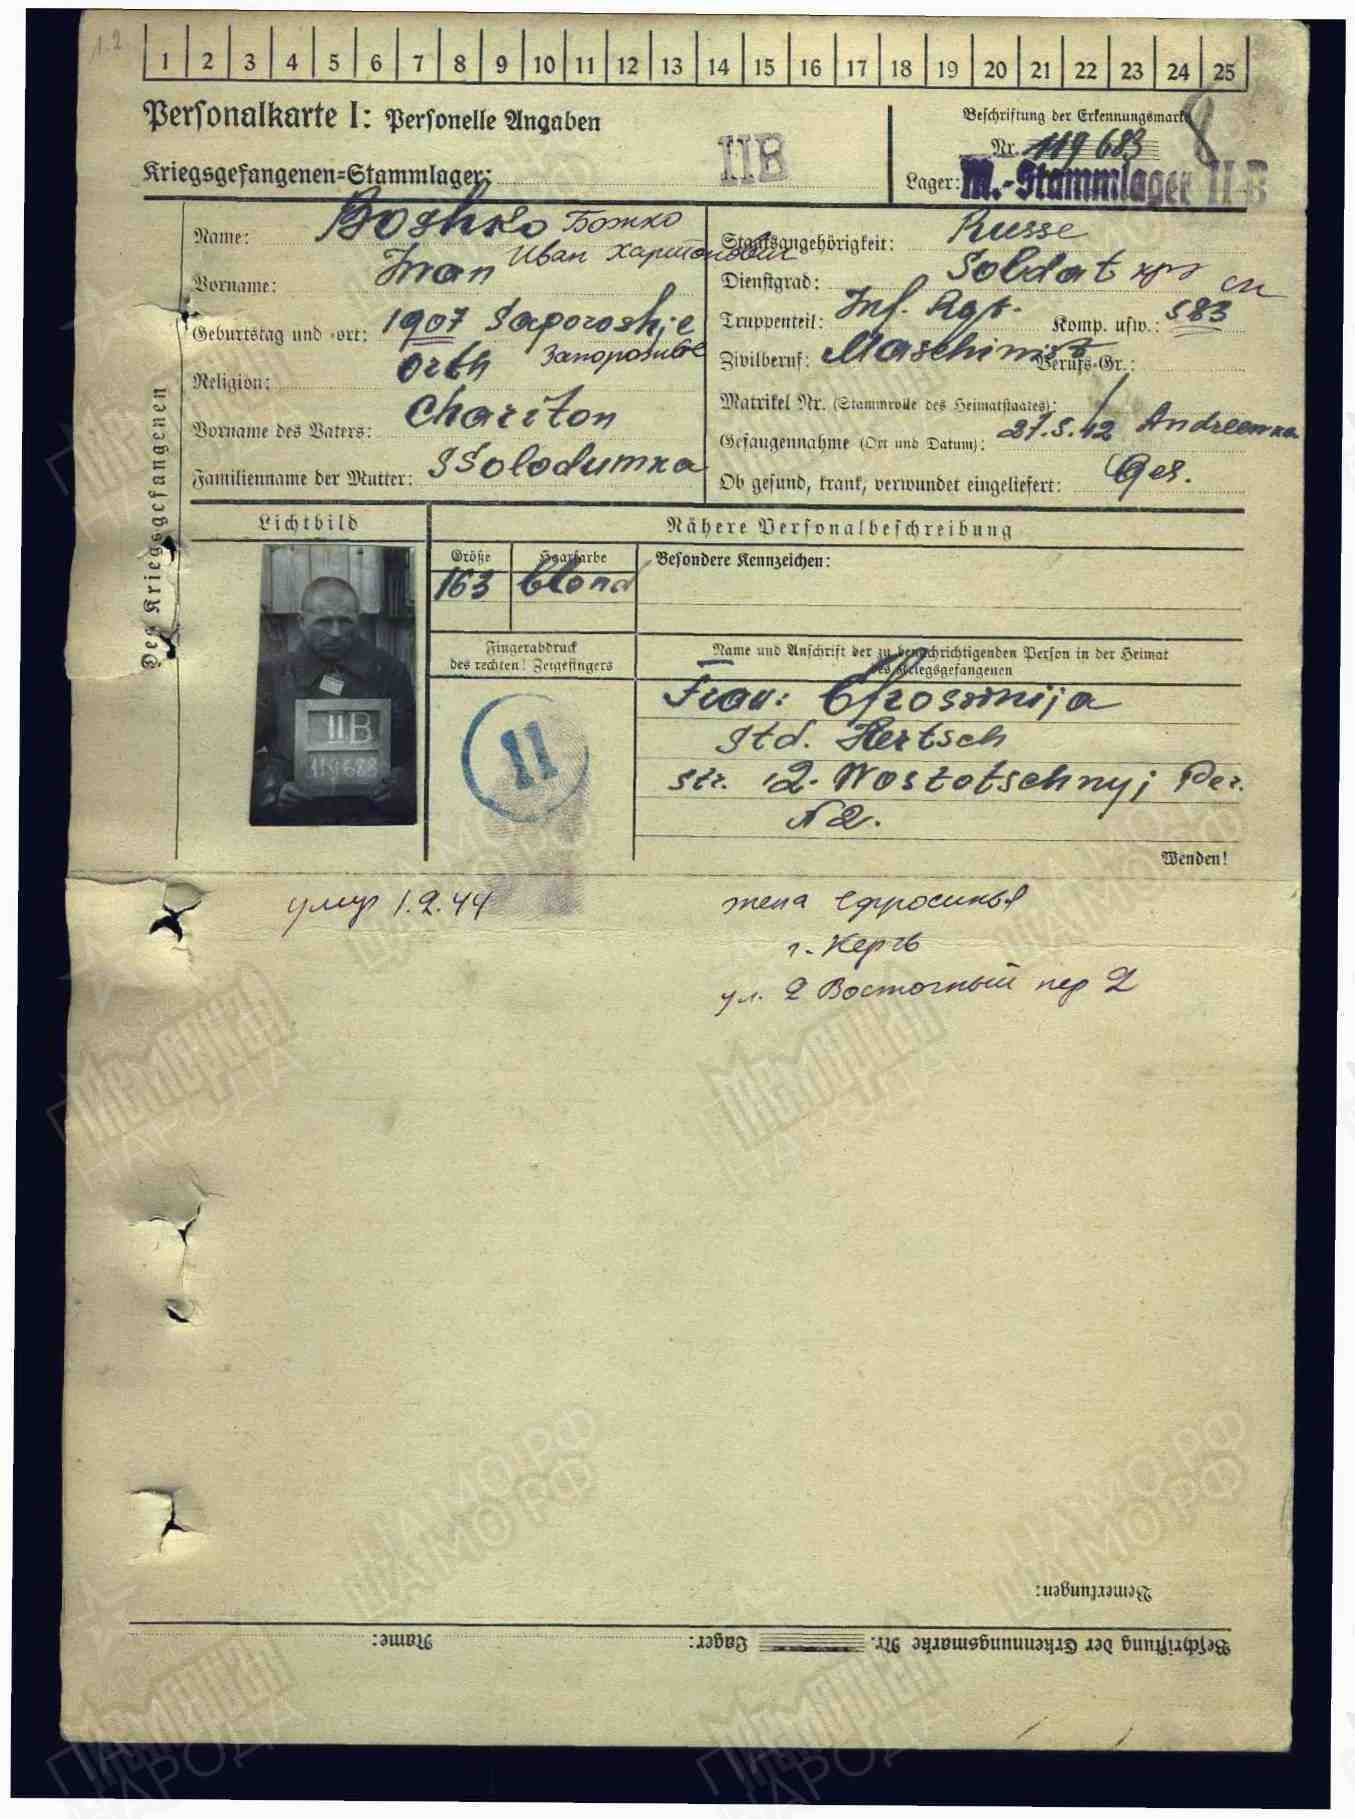 1.2
1 2 3 4 5 6 7 8 9 10 11 12 13 14 15 16 17 18 19 20 21 22 23 24 25
Personalkarte I: Personelle Angaben
Beschriftung der Erkennungsmarke
8
Nr. 119 683
Kriegsgefangenen=Stammlager: II B
Lager: M.-Stammlager II B
Name: Boshko Божко
Иван Харитонович
Vorname: Iwan
Geburtstag und -ort: 1907 Saporoshje
Запорожье
Religion: Orth
Vorname des Vaters: Chariton
Familienname der Mutter:
Staatsangehörigkeit: Russe
Dienstgrad: Soldat
Truppenteil: Inf. Rgt. Komp. usw.: 583
Zivilberuf: Maschinist Berufs-Gr.:
Matrikel Nr. (Stammrolle des Heimatstaates): /
Gefangennahme (Ort und Datum): 27.5.42 Andreewka
Ob gesund, krank, verwundet eingeliefert: Ges.
Des Kriegsgefangenen
Lichtbild
Nähere Personalbeschreibung
Größe Haarfarbe Besondere Kennzeichen:
163 blond
Fingerabdruck
des rechten! Zeigefingers
Name und Anschrift der zu benachrichtigenden Person in der Heimat
des Kriegsgefangenen
II B
11
Frau: Efrosinija
Std. Kertsch
Str. 2. Wostotschnyj Per.
N 2.
Wenden!
умер 1.2.44
жена Ефросинья
г. Керчь
ул. 2 Восточный пер 2
Bemerkungen:
Beschriftung der Erkennungsmarke Nr. Lager: Name:
ПАМЯТЬ НАРОДА
ЦАМО РФ